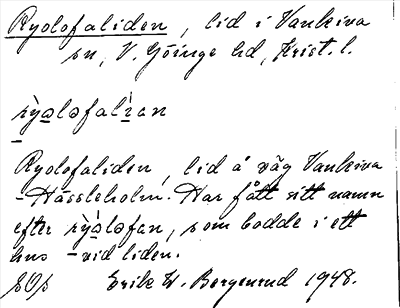 Ryolofaliden, lid i Vankiva
sn, V. Göinge hd, Krist. l.
rỳolofalìan
Ryolofaliden, lid å väg Vankiva
-Hässleholm. Har fått sitt namn
efter rỳolofan, som bodde i ett
hus - vid liden.
Erik W. Bergenrud 1948.